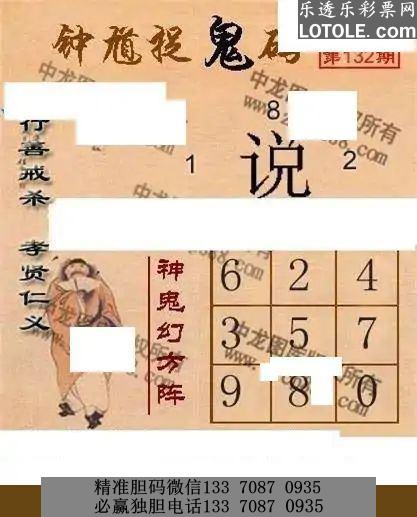 乐透乐彩票网
LOTOLE.COM
钟馗捉鬼码
第132期
行善戒杀 孝贤仁义
8
1
说
2
神鬼幻方阵
6 2 4
3 5 7
9 8 0
精准胆码微信133 7087 0935
必赢独胆电话133 7087 0935